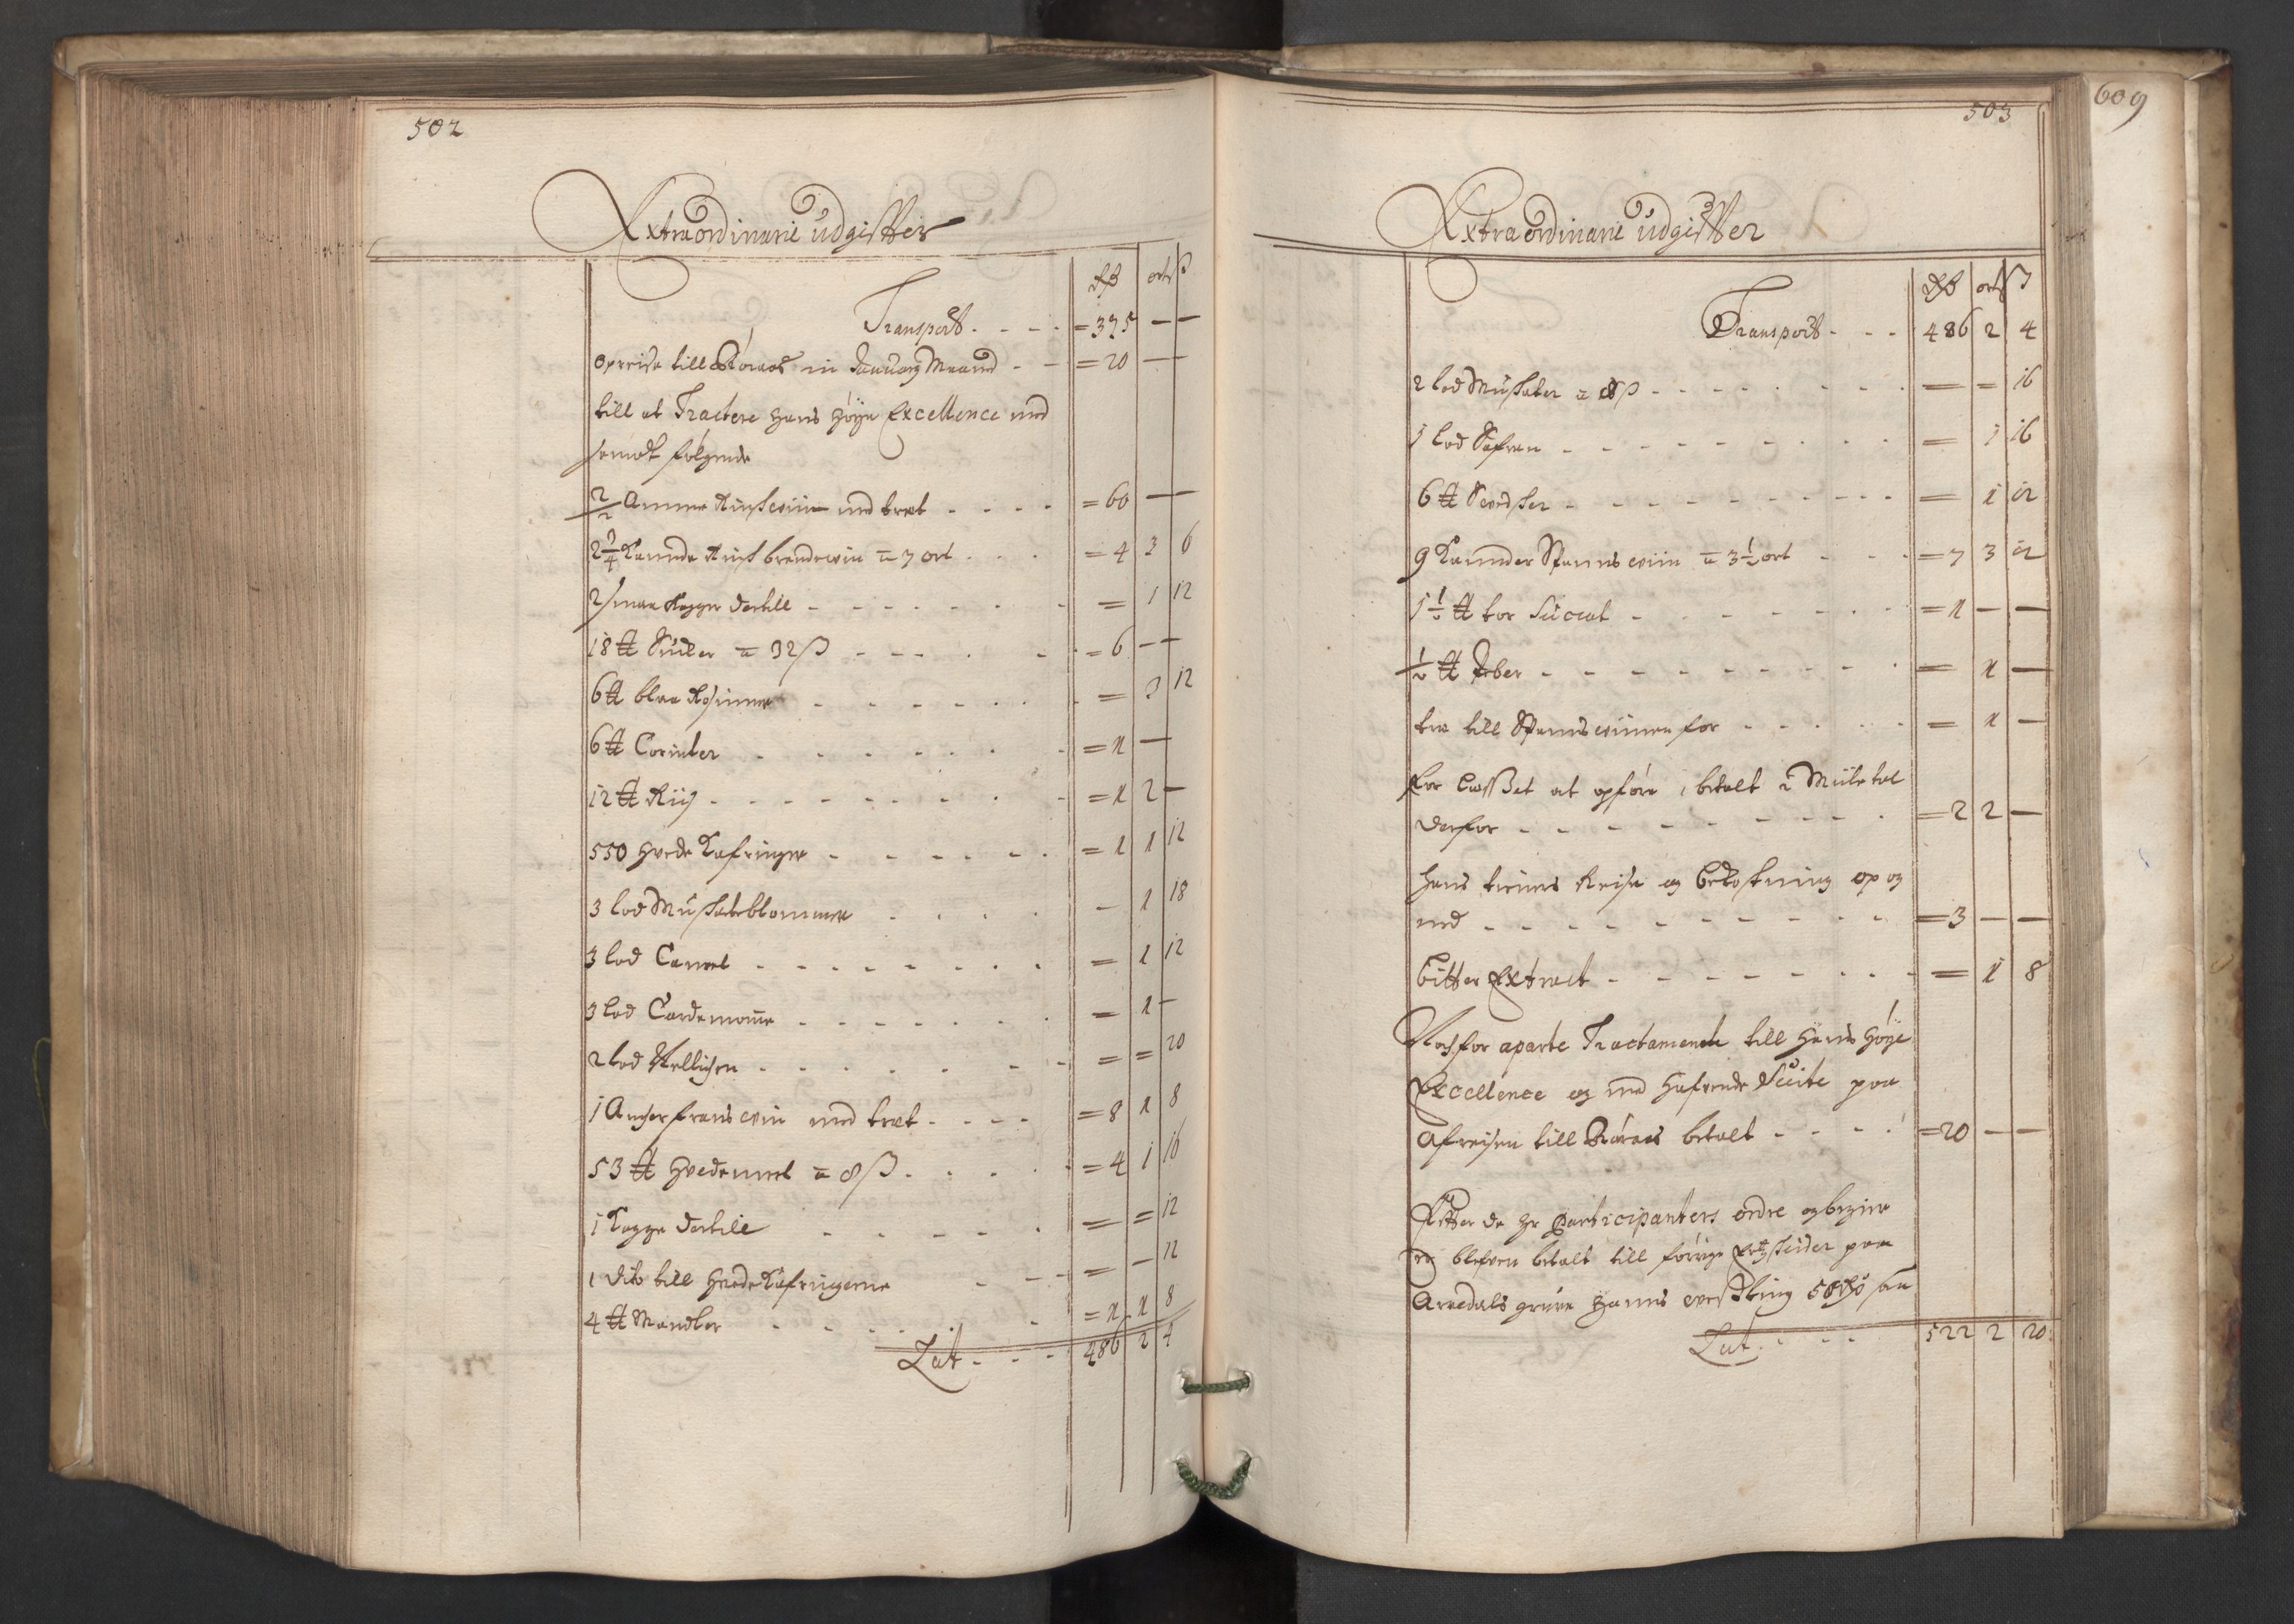 502
Extraordinarie udgifter
rdß ort ß
Transport - - - = 375 — —
opreise till Röraas in January Maand - - = 20 — —
till at Tractere hans höye Excellence med
sendt følgende
2/2 Amme Rinschwiin med træt - - - - = 60 — —
2 3/4 Kannde Rinsk brendewin a 7 ort - - - = 4 3 6
2 smaa Kagger dertill - - - - - = 1 12
18 ℔ Sucker a 32 ß - - - - = 6 — —
6 ℔ blaa Rosinner - - - - - = 3 12
6 ℔ Corinter - - - - - = 1 —
12 ℔ Riis - - - - - - = 1 2 —
550 hvede Kafringer - - - - - = 1 1 12
3 lod Muskateblommer - - - - — 1 18
3 lod Cannel - - - - - - = 1 12
3 lod Cardemomme - - - - - = 1 —
2 lod Nellichen - - - - - = = 20
1 Ancher fransewin med træt - - - - = 8 1 8
53 ℔ hvedemeel a 8 ß - - - - = 4 1 16
1 Kagge dertill - - - - - = = 12
1 dito till hvede Kafringerne - - - = — 12
4 ℔ Mandler - - - - - = 1 1 8
Lat - - - 486 2 4
503
609
Extraordinarie udgifter
rdß ort ß
Transport - - - 486 2 4
2 lod Muskater a 8 ß - - - - - — = 16
1 lod Safran - - - - - - = 1 16
6 ℔ Svedsker - - - - - - = 1 12
9 Kannder Spanns wiin a 3 1/2 ort - - - = 7 3 12
1 1/2 ℔ tor Succat - - - - - = 1 — —
1/2 ℔ - - - - - - = 1 —
træ till Spanns wiinen for - - - - = 1 —
for Lasset at opföre, betalt Miile tal
derfor - - - - - - = 2 2 —
hans Reise og bekostning op og
ned - - - - - - = 3 — —
bitter Extract - - - - - - = 1 8
Noch for aparte Tractamente till Hans Höye
Excellence og med hafvende Suite paa
afreisen till Röraas betalt - - - - = 20 — —
Efter de hr Participanters ordre og begiere
er blefven betalt till forrige paa
Arvedals gruve Hanns 50 rdß
Lat - - - 522 2 20